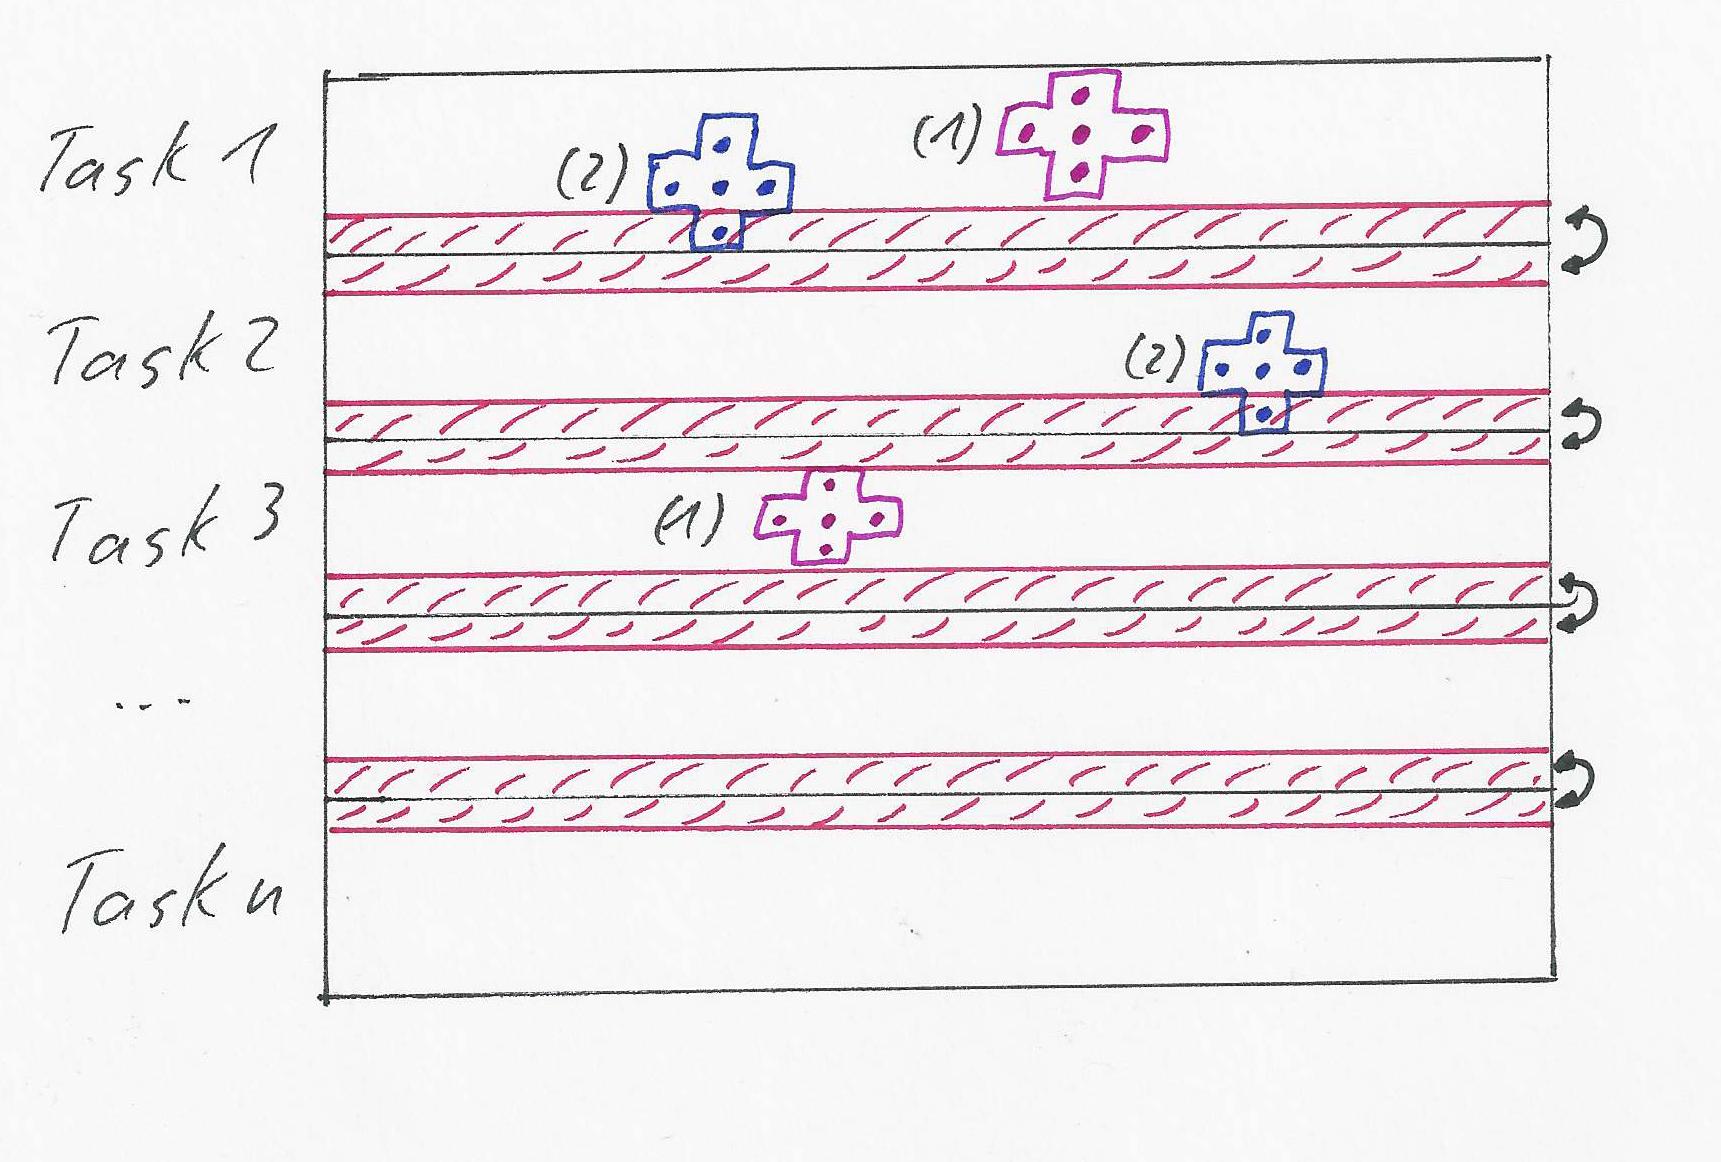 Task 1
(2)
(1)
Task 2
(2)
Task 3
(1)
...
Task n